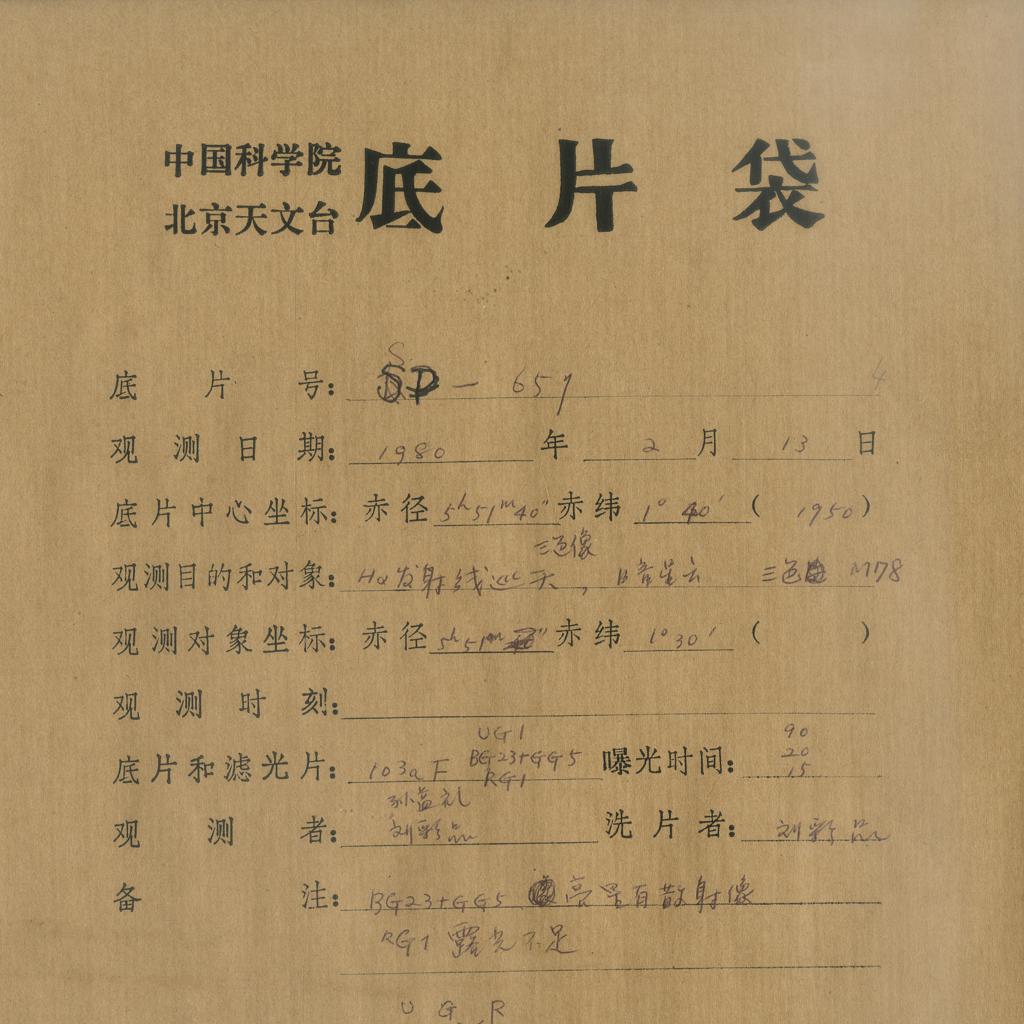 中国科学院
北京天文台 底片袋
底片号: SP - 657 4
观测日期: 1980 年 2 月 13 日
底片中心坐标: 赤径 5h51m40" 赤纬 1° 40' ( 1950 )
三色像
观测目的和对象: Hα发射线巡天, 暗星云 三色 M78
观测对象坐标: 赤径 5h51m 赤纬 1°30' ( )
观测时刻:
UG1 90
BG23+GG5 20
底片和滤光片: 103aF RG1 曝光时间: 15
孙益礼
观测者: 刘彩品 洗片者: 刘彩品
备注: BG23+GG5 亮星有散射像
RG1 露光不足
U G R